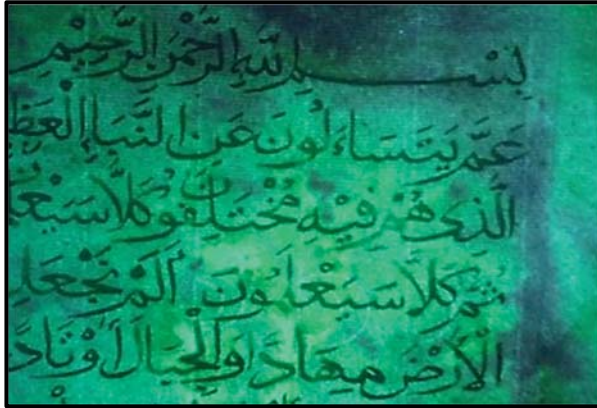 بِسْمِ اللّٰهِ الرَّحْمٰنِ الرَّحِيْمِ
عَمَّ يَتَسَاءَلُوْنَ عَنِ النَّبَإِ الْعَظِ
الَّذِي هُمْ فِيْهِ مُخْتَلِفُوْنَ كَلَّا سَيَعْلَ
ثُمَّ كَلَّا سَيَعْلَمُوْنَ أَلَمْ نَجْعَلِ
الْأَرْضَ مِهَادًا وَالْجِبَالَ أَوْتَادًا